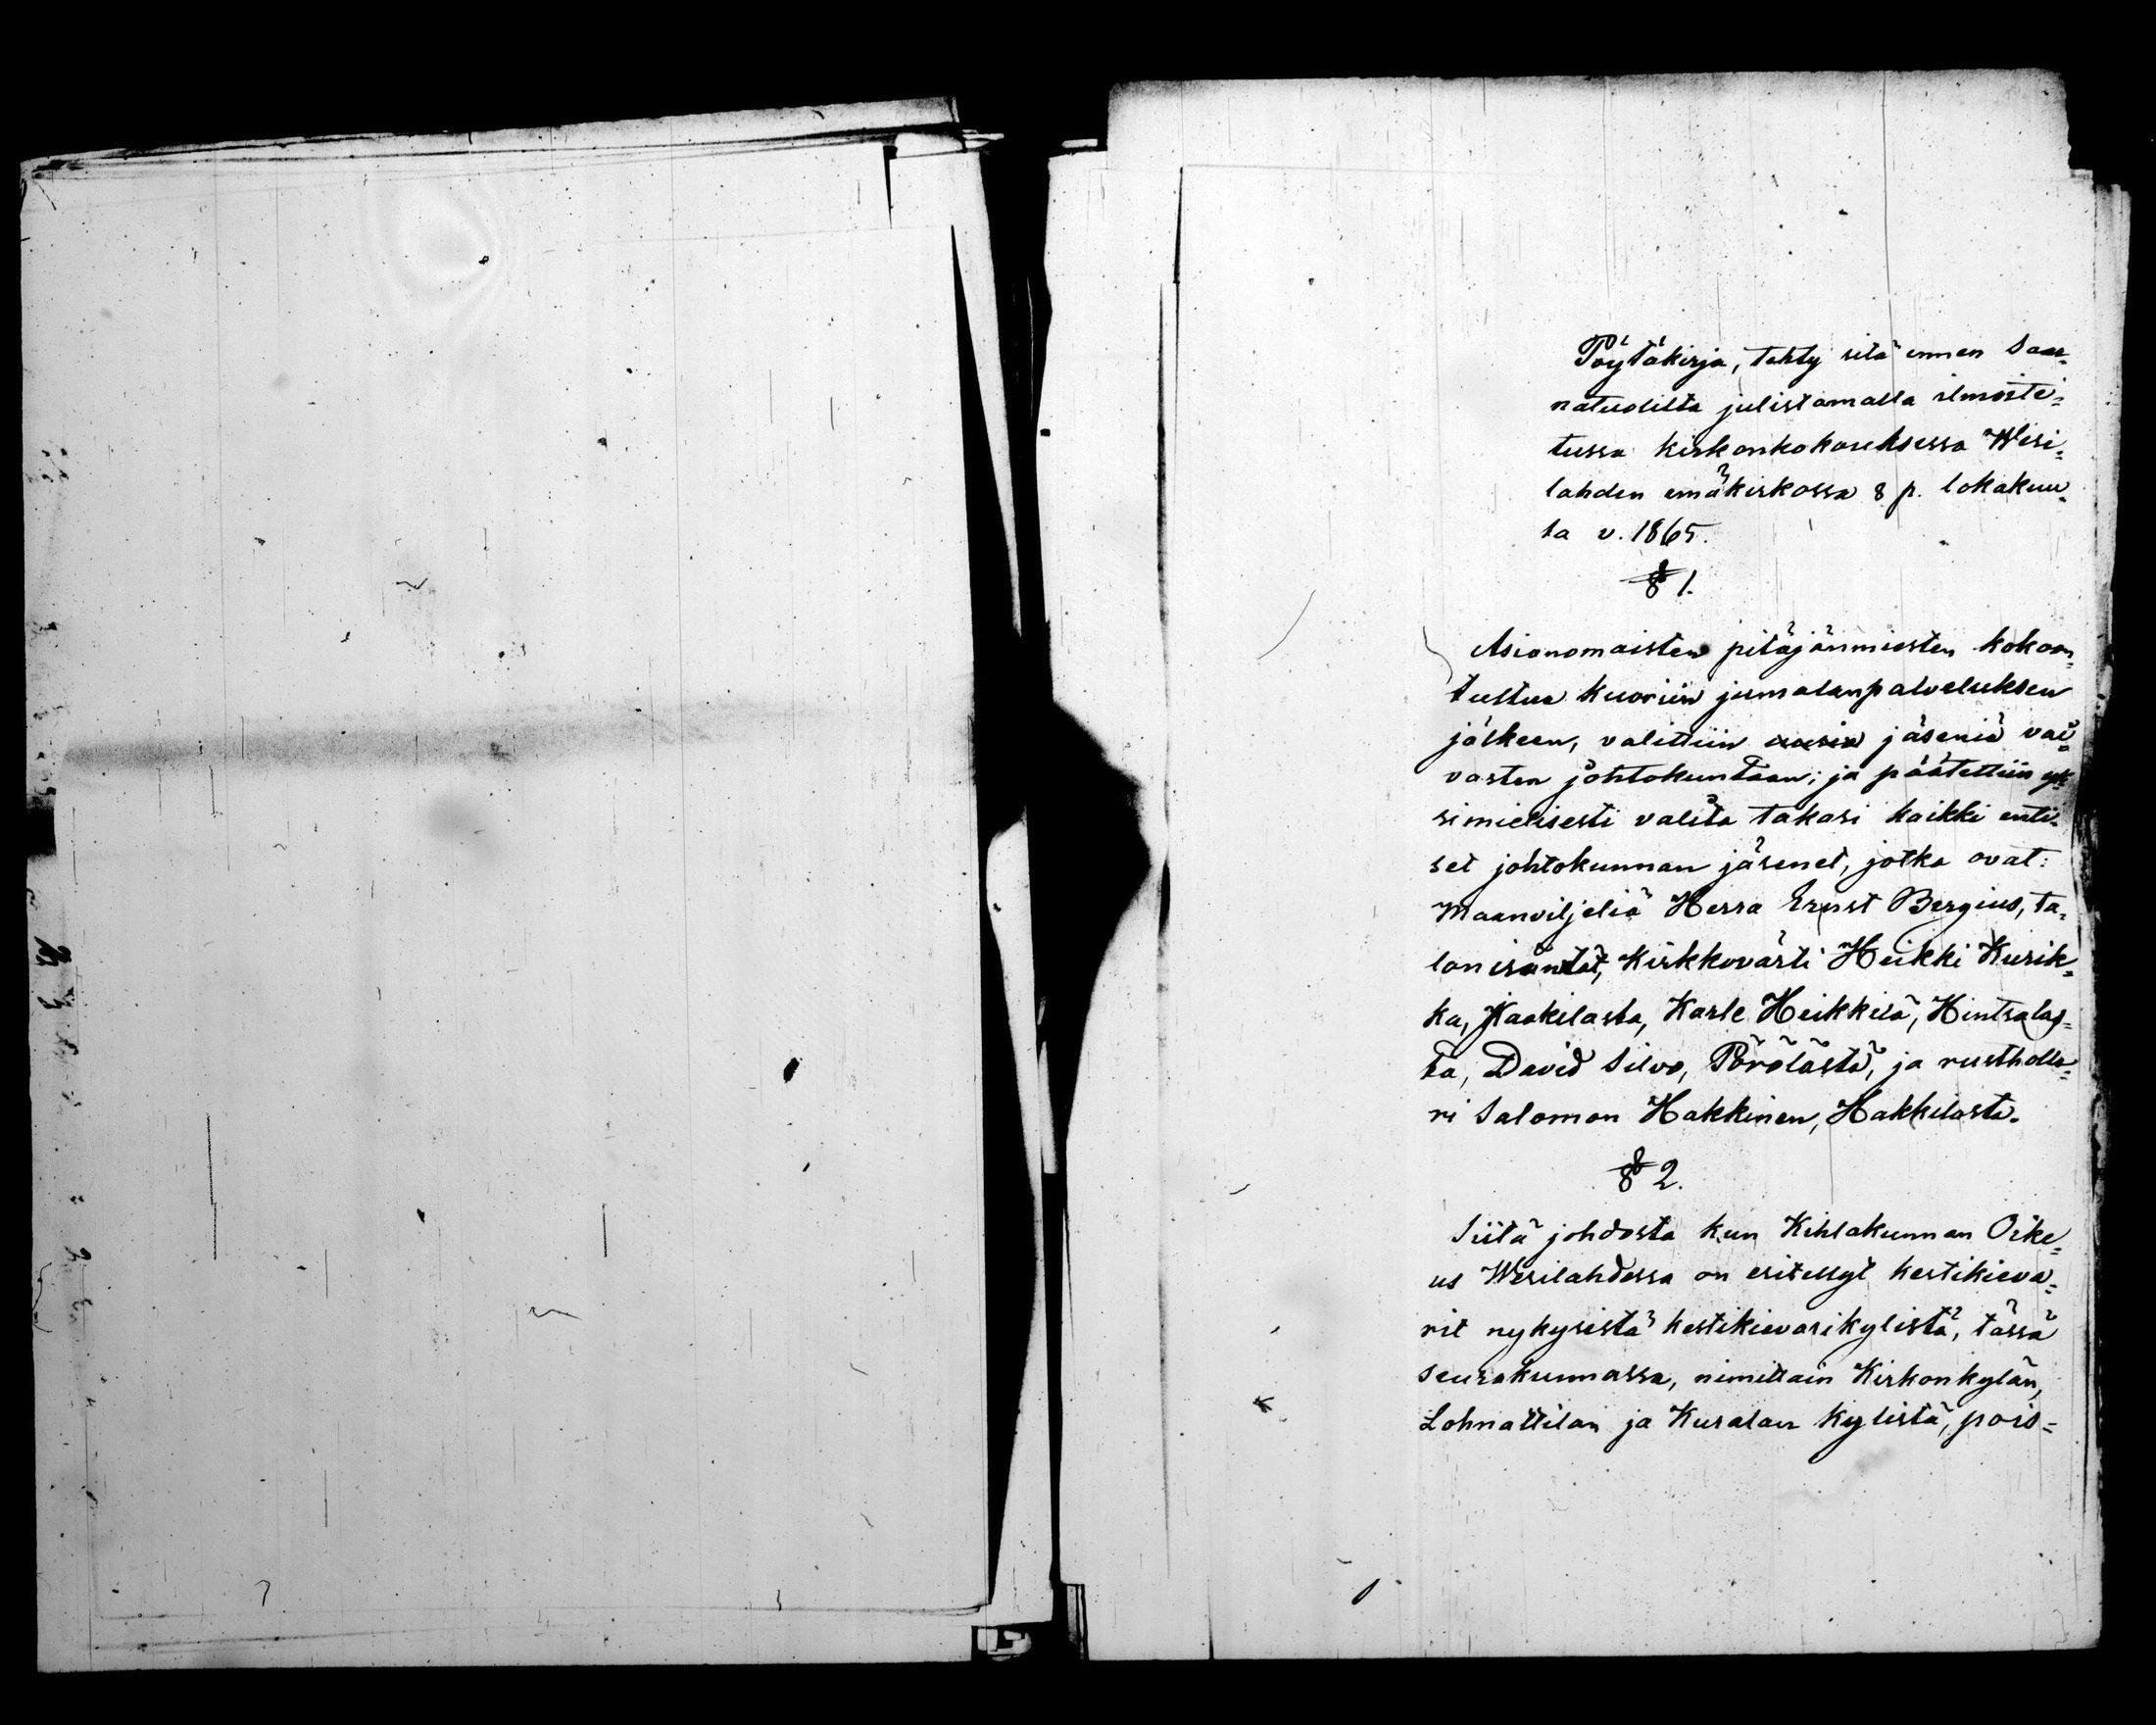 Pöytäkirja, tehty sitä ennen saar-
natuolilta julistamalla ilmoite-
tussa kirkonkokouksessa Wesi-
lahden emäkirkossa 8 p. lokakuu-
ta v. 1865.
§ 1.
Asianomaisten pitäjänmiesten kokoon-
tultua kuoriin jumalanpalveluksen
jälkeen, valittiin uusia jäseniä vai-
vasten johtokuntaan; ja päätettiin yk-
simielisesti valita takasi kaikki enti-
set johtokunnan jäsenet, jotka ovat:
Maanviljeliä Herra Ernst Bergius, ta-
lonisäntät, Kirkkovärti Heikki Kurik-
ka, Kaakilasta, Karle Heikkilä, Hintsalas-
ta, David Silvo, Pörölästä, ja rustholla-
ri Salomon Hakkinen, Hakkilasta.
§ 2.
Siitä johdosta kun Kihlakunnan Oike-
us Wesilahdessa on eritellyt kestikieva-
rit nykysistä kestikievarikylistä, tässä
seurakunnassa, nimittäin Kirkonkylän,
Lohnattilan ja Kuralan kylistä, pois-